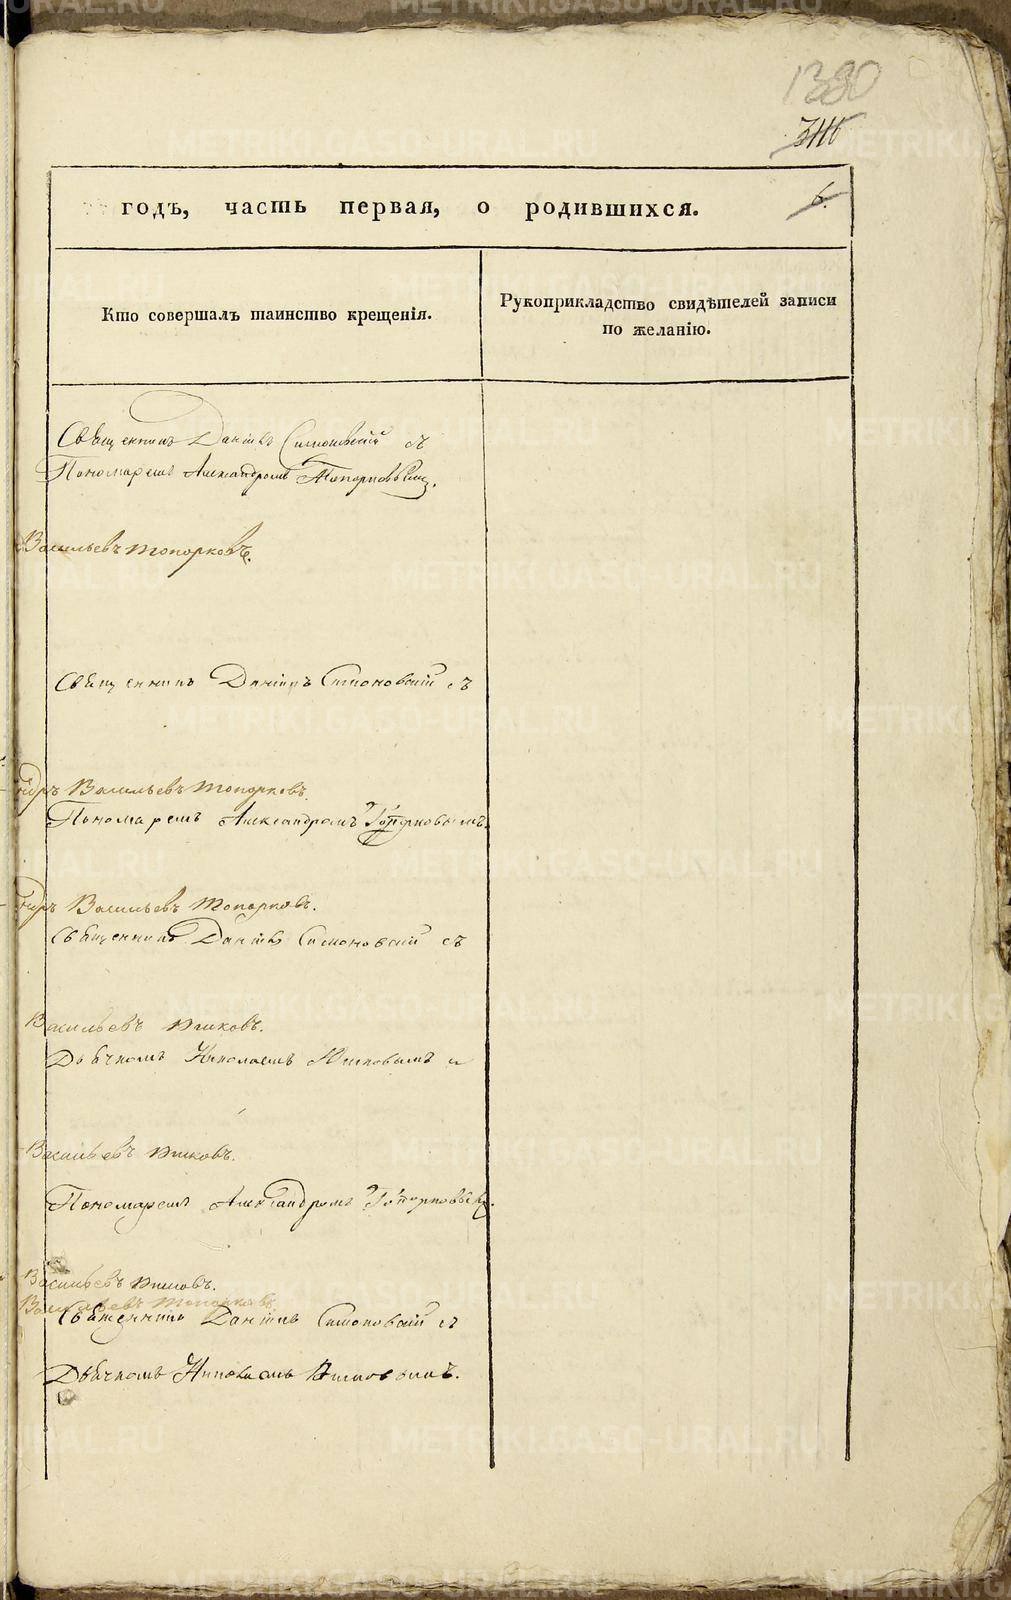 1380
годъ, часть первая, о родившихся.
6.
Кто совершалъ таинство крещенія.
Рукоприкладство свидѣтелей записи
по желанію.
Священникъ Даніилъ Симоновскій съ
Пономаремъ Александромъ Топорковымъ.
Васильевъ Топорковъ.
Священникъ Даніилъ Симоновскій съ
ндръ Васильевъ Топорковъ.
Пономаремъ Александромъ Топорковымъ.
ндръ Васильевъ Топорковъ.
Священникъ Даніилъ Симоновскій съ
Васильевъ
Дьячкомъ Николаемъ и
Васильевъ
Пономаремъ Александромъ Топорковымъ.
Васильевъ
Васильевъ Топорковъ
Священникъ Даніилъ Симоновскій съ
Дьячкомъ Николаемъ
METRIKI.GASO-URAL.RU